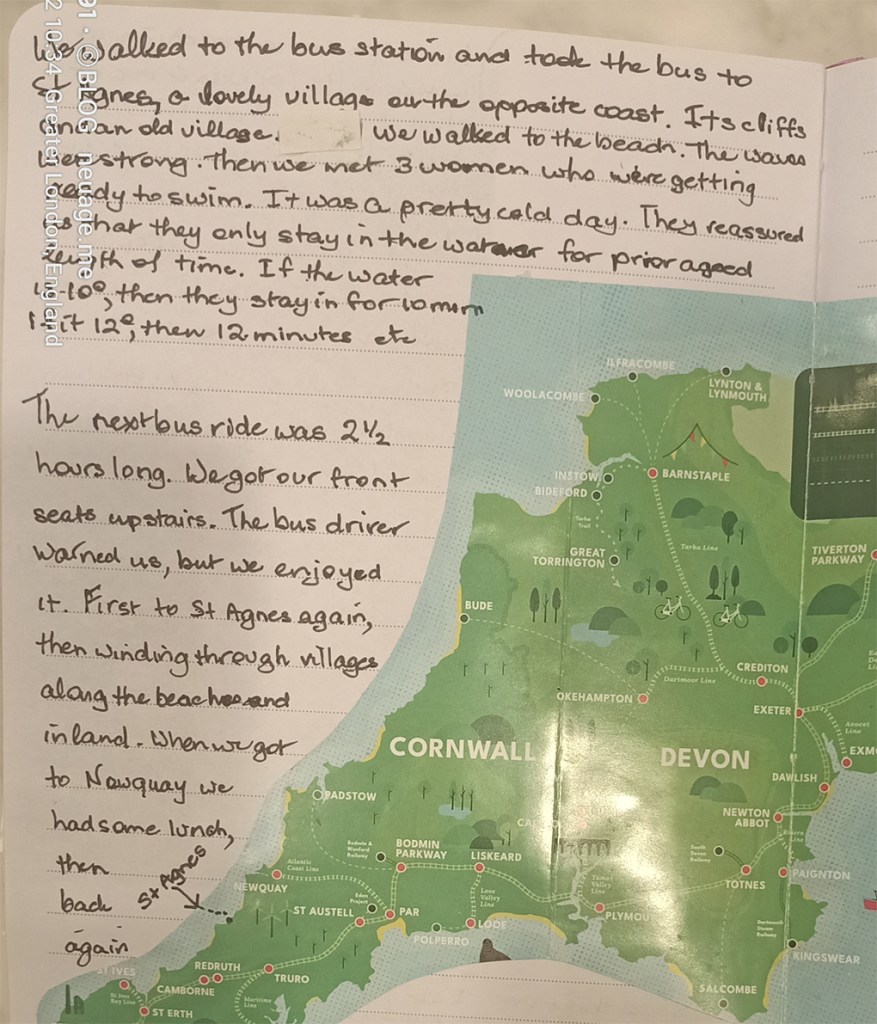 We walked to the bus station and took the bus to
St Agnes, a lovely village on the opposite coast. Its cliffs
and an old village. We walked to the beach. The waves
were strong. Then we met 3 women who were getting
ready to swim. It was a pretty cold day. They reassured
us that they only stay in the water for prior ageed
length of time. If the water
is 10°, then they stay in for 10 mins
If it 12°, then 12 minutes etc
The next bus ride was 2½
hours long. We got our front
seats upstairs. The bus driver
warned us, but we enjoyed
it. First to St Agnes again,
then winding through villages
along the beaches and
inland. When we got
to Newquay we
had some lunch,
then
back
again
St Agnes
ILFRACOMBE
WOOLACOMBE
LYNTON &
LYNMOUTH
INSTOW
BIDEFORD
BARNSTAPLE
Tarka
Trail
Tarka Line
GREAT
TORRINGTON
TIVERTON
PARKWAY
BUDE
CREDITON
Dartmoor Line
OKEHAMPTON
EXETER
Avocet
Line
CORNWALL
DEVON
DAWLISH
PADSTOW
NEWTON
ABBOT
Riviera
Line
Bodmin &
Wenford
Railway
BODMIN
PARKWAY
LISKEARD
South
Devon
Railway
Atlantic
Coast Line
NEWQUAY
Looe
Valley
Line
Tamar
Valley
Line
TOTNES
PAIGNTON
Eden
Project
ST AUSTELL
PAR
LOOE
PLYMOU
POLPERRO
Dartmouth
Steam
Railway
KINGSWEAR
ST IVES
REDRUTH
TRURO
CAMBORNE
St Ives
Bay Line
Maritime
Line
ST ERTH
SALCOMBE
91 · ©BLOG neuage.me
2 10:34 Greater London England